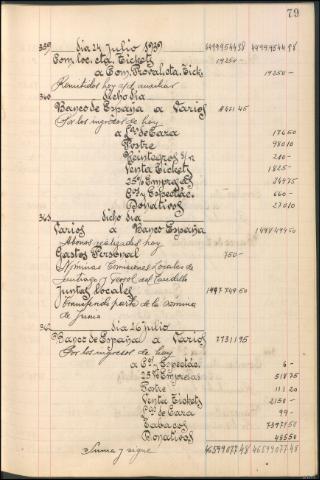 79
339 día 24 Julio 1939 4499954498 4499954498
Com. loc. cta. Tickets 19250-
a Com. Proval. cta. Tick. 19250-
Remitidos hoy s/d auxiliar
340 dicho día
Banco de España a Varios 8451 45
Por los ingresos de hoy
a Cara 17650
Postre 98010
Reintegros S/n 280-
Venta Tickets 1825-
25% Empresas 24975
y Espectác. 660-
Donativos 27010
dicho día
Varios a Banco España 149849450
Abonos realizados hoy
Gastos Personal 750-
Nóminas Comisiones Locales de
Santiago y Ferrol del Caudillo
Juntas Locales 149774450
Transferido parte de la nómina
de Junio
342 día 26 julio
Banco de España a Varios 7731195
Por los ingresos de hoy
a Espectác. 6-
25% Empresas 51875
Postre 11120
Venta Tickets 2150-
de Cara 99-
Tabacos
Donativos 48550
Suma y sigue 4659907748 4659907748